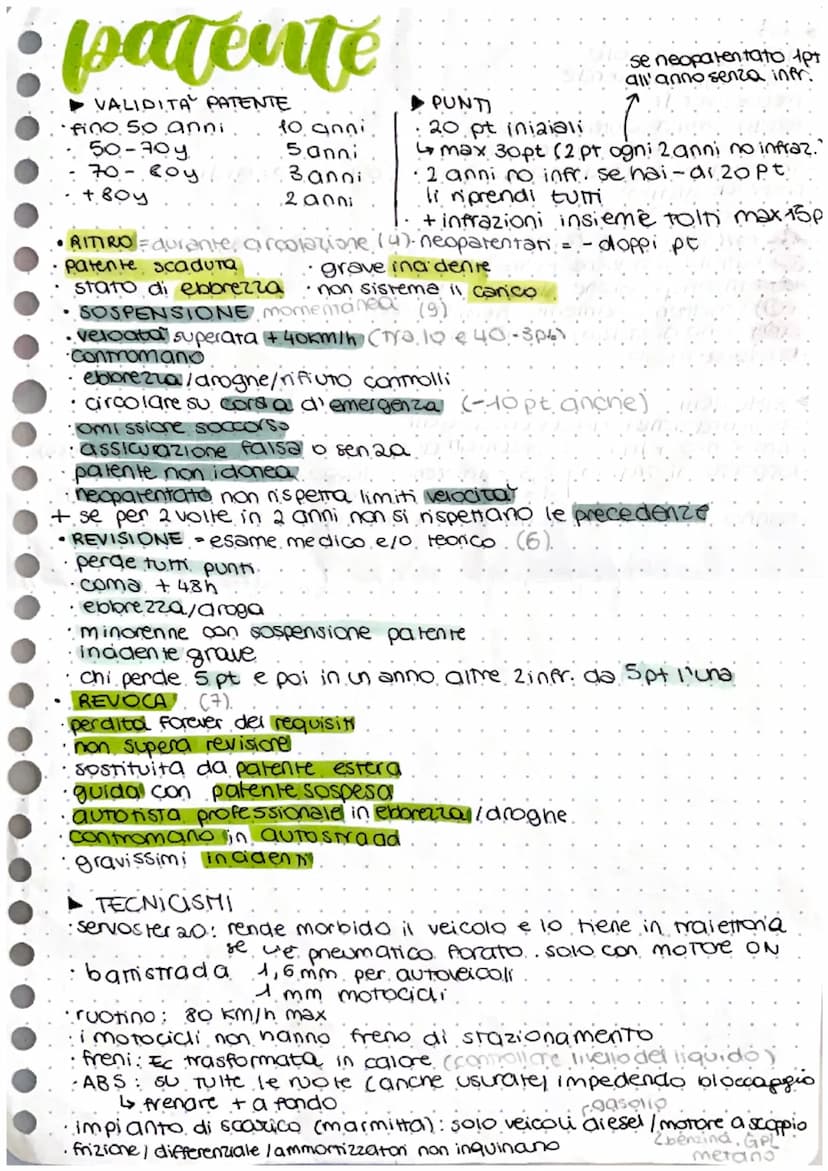 patente
se neopatentato 1pt
all'anno senza infr.
▶ VALIDITÀ PATENTE
· fino 50 anni 10 anni
· 50-70y 5 anni
· 70-80y 3 anni
· +80y 2 anni
▶ PUNTI
· 20 pt iniziali
↳ max 30pt (2 pt ogni 2 anni no infraz.)
· 2 anni no infr. se hai - di 20 pt
li riprendi tutti
· + infrazioni insieme tolti max 15p
· RITIRO = durante circolazione (4) · neopatentati = - doppi pt
· patente scaduta · grave incidente
· stato di ebbrezza · non sistema il carico
· SOSPENSIONE momentanea (9)
· velocità superata +40km/h (tra 10 e 40 -3pt)
· contromano
· ebbrezza/drogne/rifiuto controlli
· circolare su corsia d'emergenza (-10 pt anche)
· omissione soccorso
· assicurazione falsa o senza
· patente non idonea
· neopatentato non rispetta limiti velocità
+ se per 2 volte in 2 anni non si rispettano le precedenze
· REVISIONE = esame medico e/o teorico (6)
· perde tutti punti
· coma +48h
· ebbrezza/droga
· minorenne con sospensione patente
· incidente grave
· chi perde 5 pt e poi in un anno altre 2 infr. da 5pt l'una
· REVOCA (7)
· perdita forever dei requisiti
· non supera revisione
· sostituita da patente estera
· guida con patente sospesa
· autotista professionale in ebbrezza/droghe
· contromano in autostrada
· gravissimi incidenti
▶ TECNICISMI
· servosterzo: rende morbido il veicolo e lo tiene in traiettoria
se c'è pneumatico forato. solo con motore ON
· battistrada 1,6 mm per autoveicoli
1 mm motocicli
· ruotino: 80 km/h max
· i motocicli non hanno freno di stazionamento
· freni: Ec trasformata in calore (controllare livello del liquido)
· ABS: su tutte le ruote (anche usurate) impedendo bloccaggio
↳ frenare + a fondo
gasolio
· impianto di scarico (marmitta): solo veicoli diesel/motore a scoppio
benzina, GPL
metano
· frizione/differenziale/ammortizzatori non inquinano